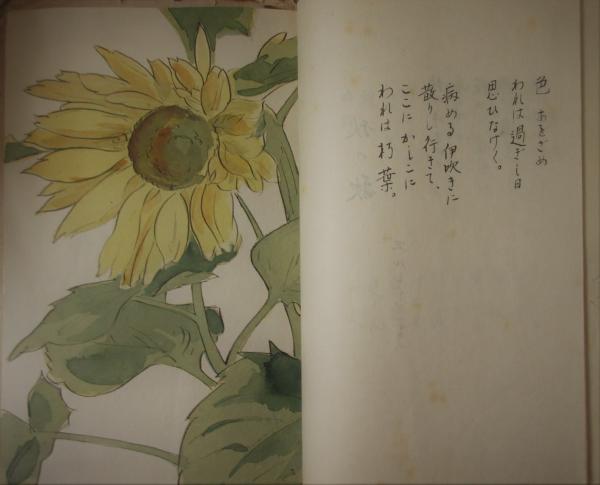 色 あをざめ
われは 過ぎし日
思ひなげく。
病める 伊吹きに
散りし 行きて、
ここに かしこに
われは 朽葉。